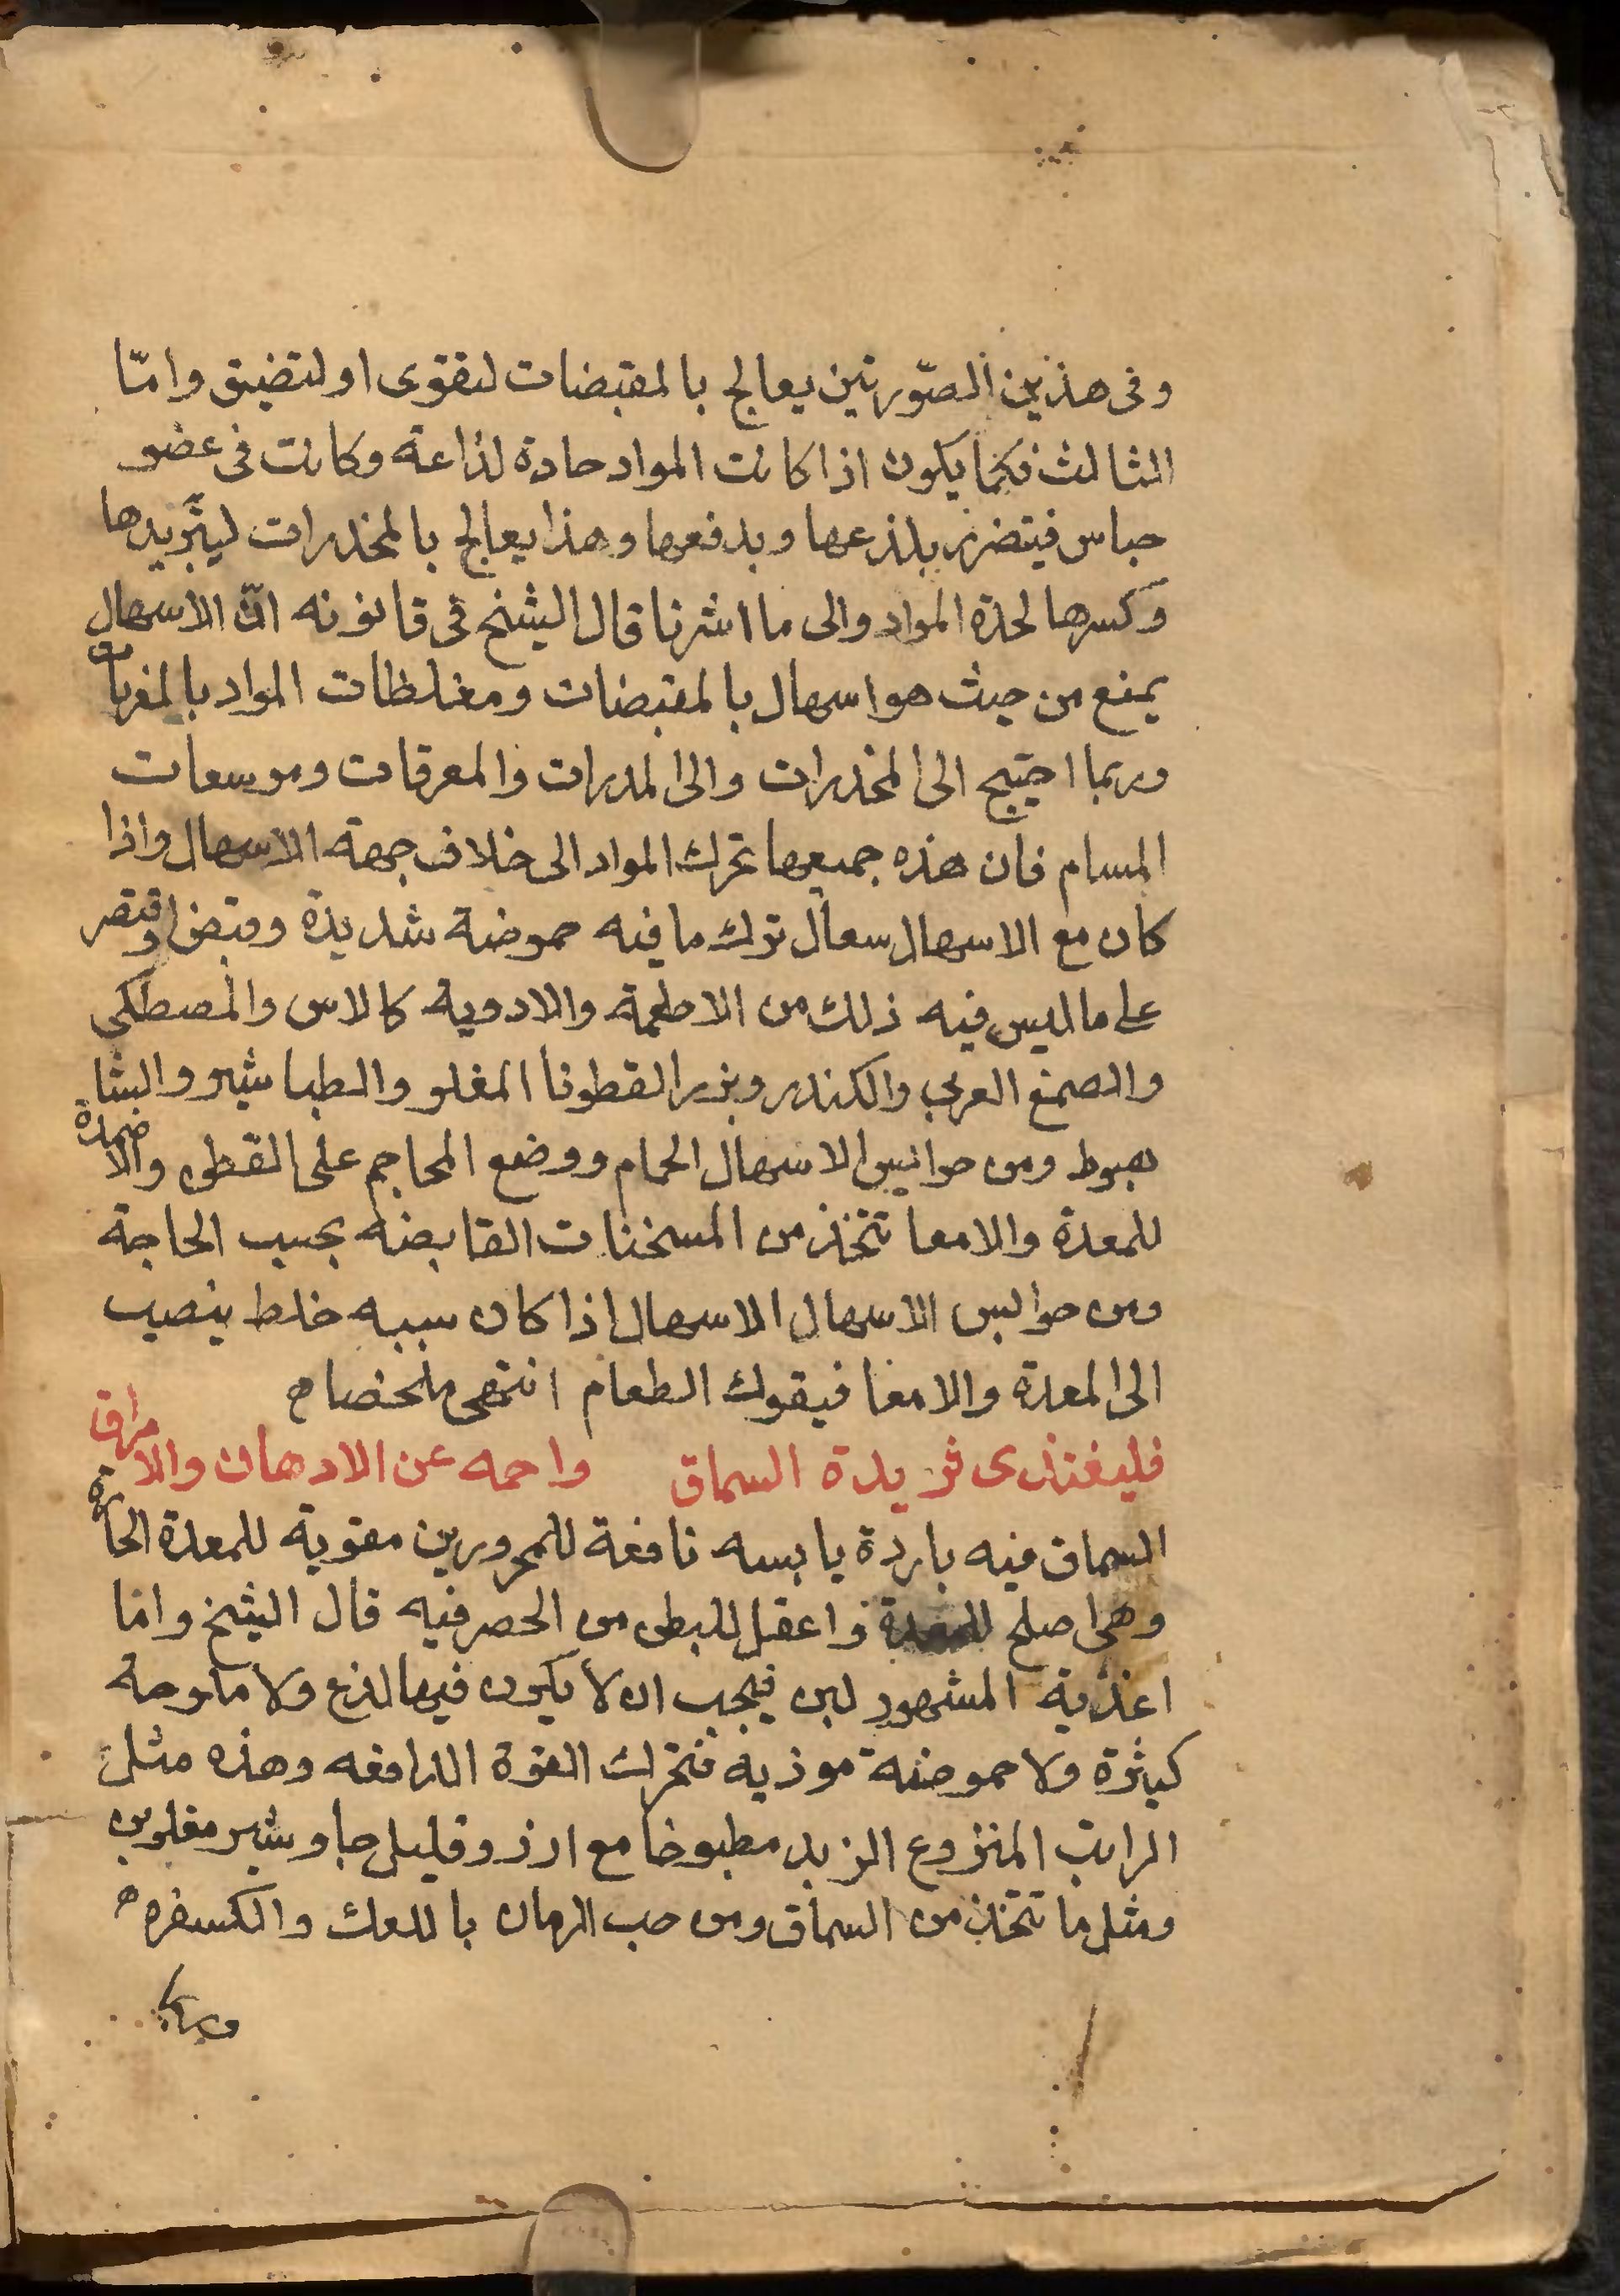 وفى هذين الصّورتين يعالج بالمقبضات لتقوى او لتضيق وامّا
الثالث فكما يكون اذا كانت المواد حادة لذاعة وكانت فى عضو
حباس فيتضرر بلذعها وبدفعها وهذا يعالج بالمخدرات ليبّريدها
وكسرها لحدة المواد والى ما اشرنا قال الشيخ فى قانونه انّ الاسهال
يمنع من حيث هو اسهال بالمقبضات ومغلظات المواد بالمغريات
وربما احتيج الى المخدرات والى المدرات والمعرقات وموسعات
المسام فان هذه جميعها تحرك المواد الى خلاف جهة الاسهال واذا
كان مع الاسهال سعال ترك ما فيه حموضة شديدة وقبض واقتصر
على ما ليس فيه ذلك من الاطعمة والادوية كالاس والمصطكى
والصمغ العربى والكندر وبزر القطونا المغلو والطباشير والشا
هبوط ومن حوابس الاسهال الحمام ووضع المحاجم على القطن والاضمدة
للمعدة والامعا تتخذ من المسخنات القابضه بحسب الحاجة
ومن حوابس الاسهال الاسهال اذا كان سببه خلط ينصب
الى المعدة والامعا فيقوك الطعام انتهى ملخصا ه
فليغتذى ثريدة السماق واحمه عن الادهان والامراق
السماق فيه باردة يابسه نافعة للمحرورين مقوية للمعدة الحارة
وهى اصلح للمعدة واعقل للبطن من الحصرفيه قال الشيخ وامّا
اغذية المشهورلين فيجب ان لا يكون فيها لذع ولا ملوحة
كيثرة ولا حموضة موذيه فتحرك القوة الدافعه وهذه مثل
الرايب المنزوع الزبد مطبوخا مع ارز وقليل جاوشير مقلوين
ومثل ما تتخذ من السماق ومن حب الرمان بالكعك والكسفره